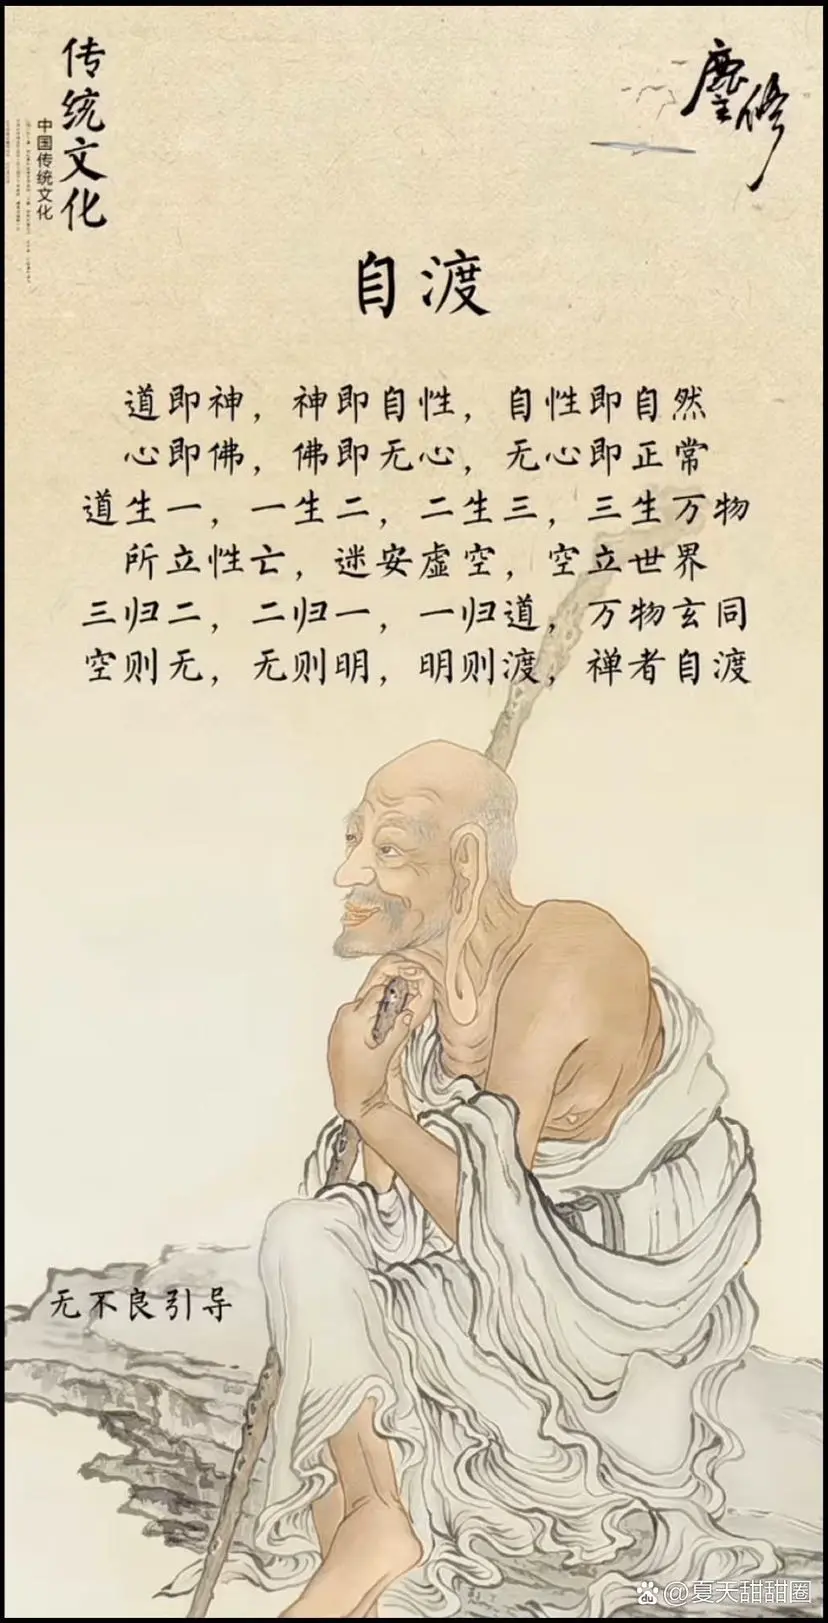 传统文化
中国传统文化
塵修
自渡
道即神，神即自性，自性即自然
心即佛，佛即无心，无心即正常
道生一，一生二，二生三，三生万物
所立性亡，迷安虚空，空立世界
三归二，二归一，一归道，万物玄同
空则无，无则明，明则渡，禅者自渡
无不良引导
@夏天甜甜圈